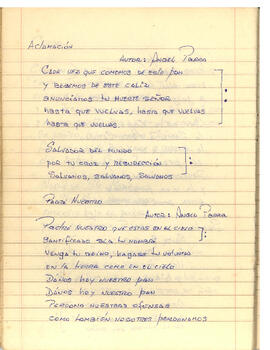 Aclamación
Autor: Angel Parra
Cada vez que comemos de este pan
y bebemos de este caliz
anunciamos tu muerte Señor
hasta que vuelvas, hasta que vuelvas
hasta que vuelvas
Salvador del mundo
por tu cruz y resurrección
Salvanos, salvanos, salvanos
Padre Nuestro
Autor: Angel Parra
Padre nuestro que estas en el cielo
Santificado sea tu nombre
Venga tu reino, hagase tu voluntad
en la tierra como en el cielo
Dános hoy nuestro pan
Dános hoy nuestro pan
Perdona nuestras ofensas
como también nosotros perdonamos